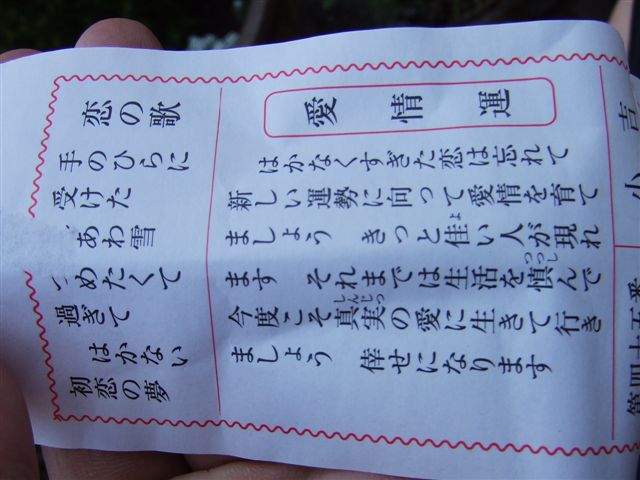 第四十五番
小吉
愛情運
はかなくすぎた恋は忘れて
新しい運勢に向って愛情を育て
ましょう きっと佳い人が現れ
ます それまでは生活を慎んで
今度こそ真実の愛に生きて行き
ましょう 倖せになります
恋の歌
手のひらに
受けた
あわ雪
つめたくて
過ぎて
はかない
初恋の夢